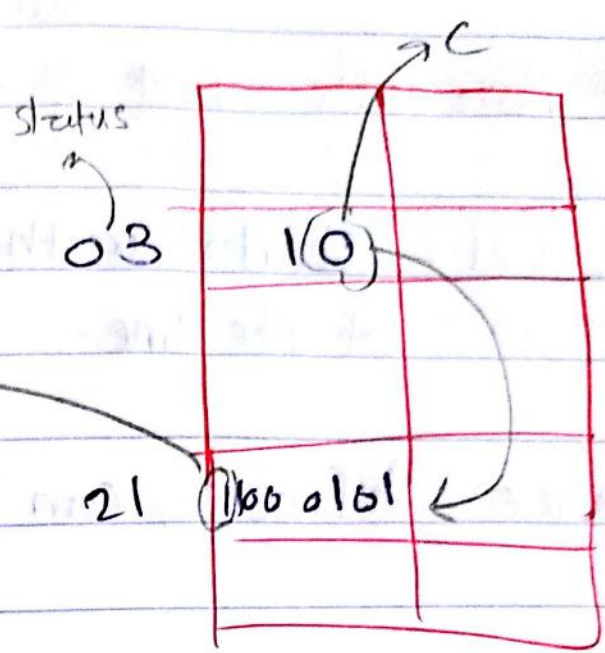 C
status
03 10
21 1100 0101